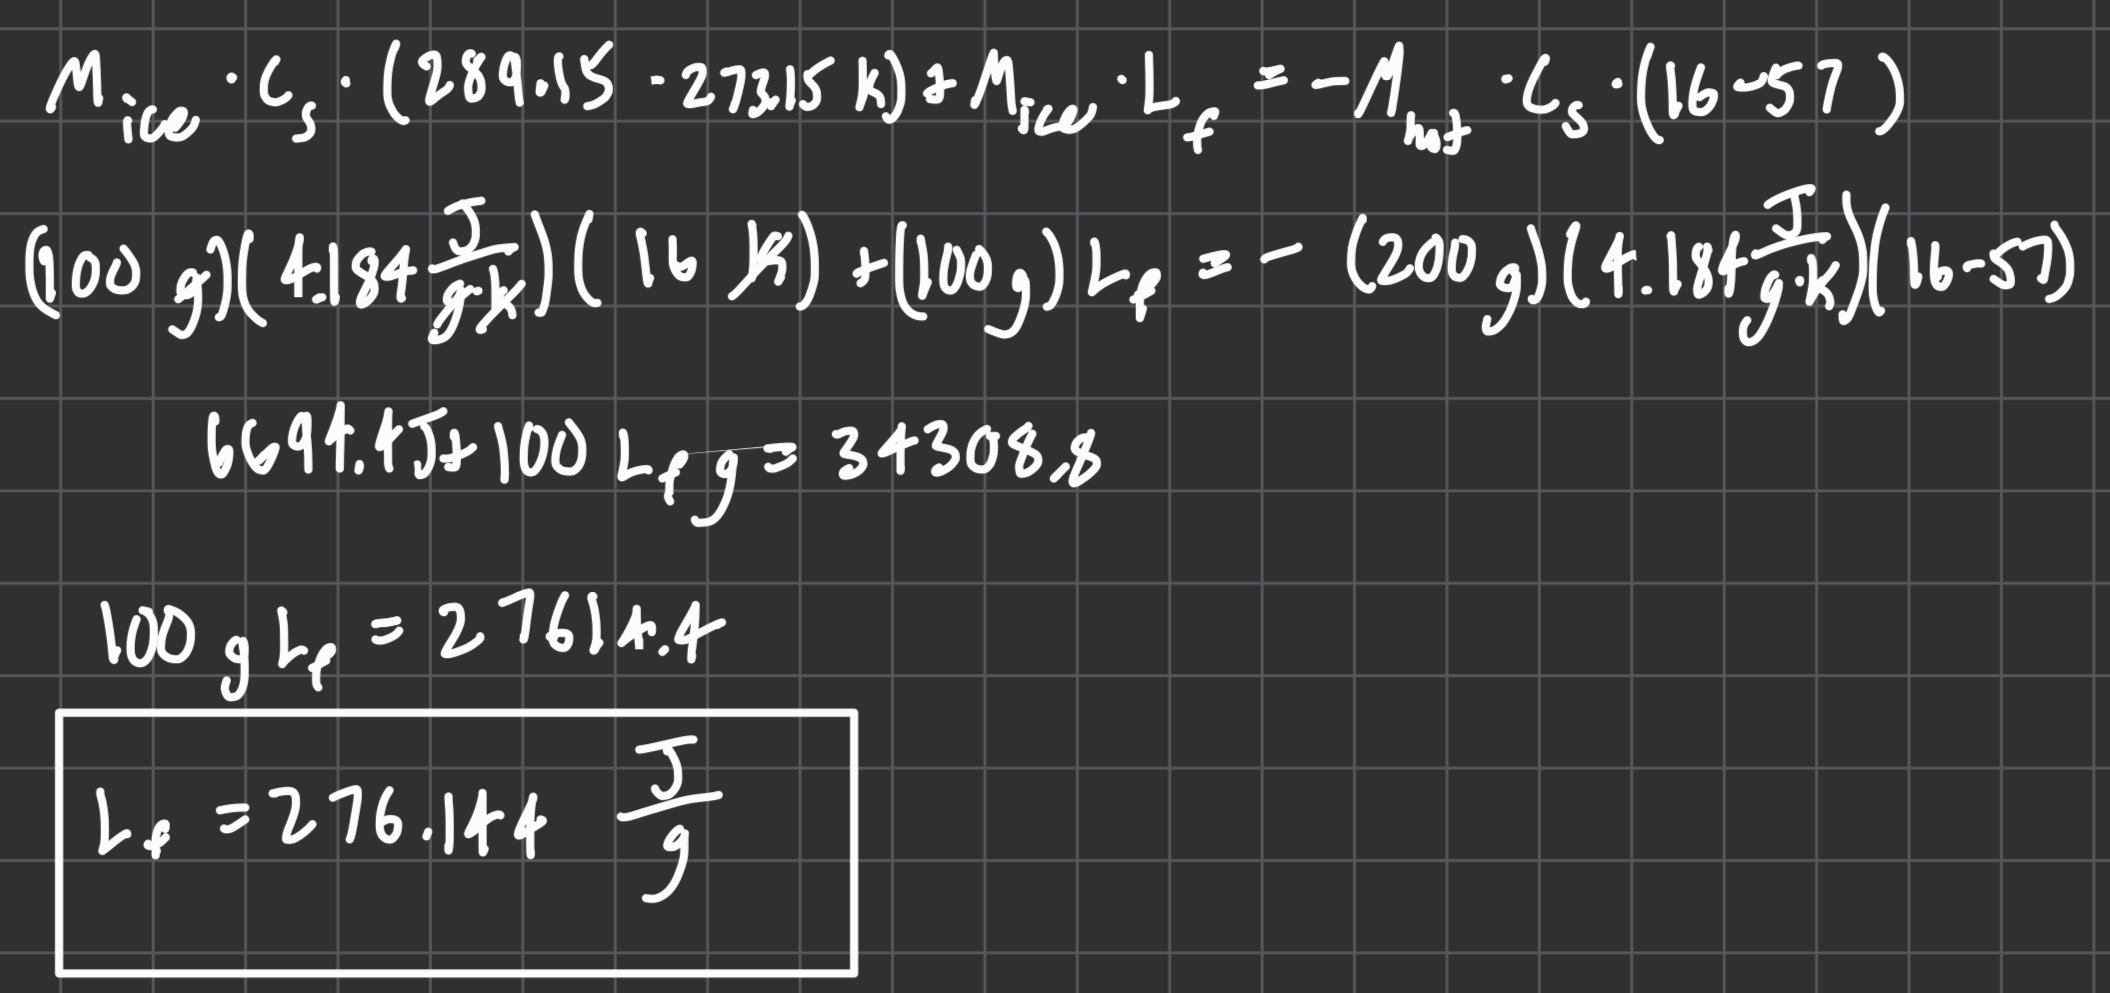 M_ice · C_s · (289.15 - 273.15 K) + M_ice · L_f = -M_hot · C_s · (16-57)
(100 g)(4.184 J/g·K)(16 K) + (100g) L_f = - (200 g)(4.184 J/g·K)(16-57)
6694.4J + 100 L_f g = 34308.8
100 g L_f = 27614.4
L_f = 276.144 J/g